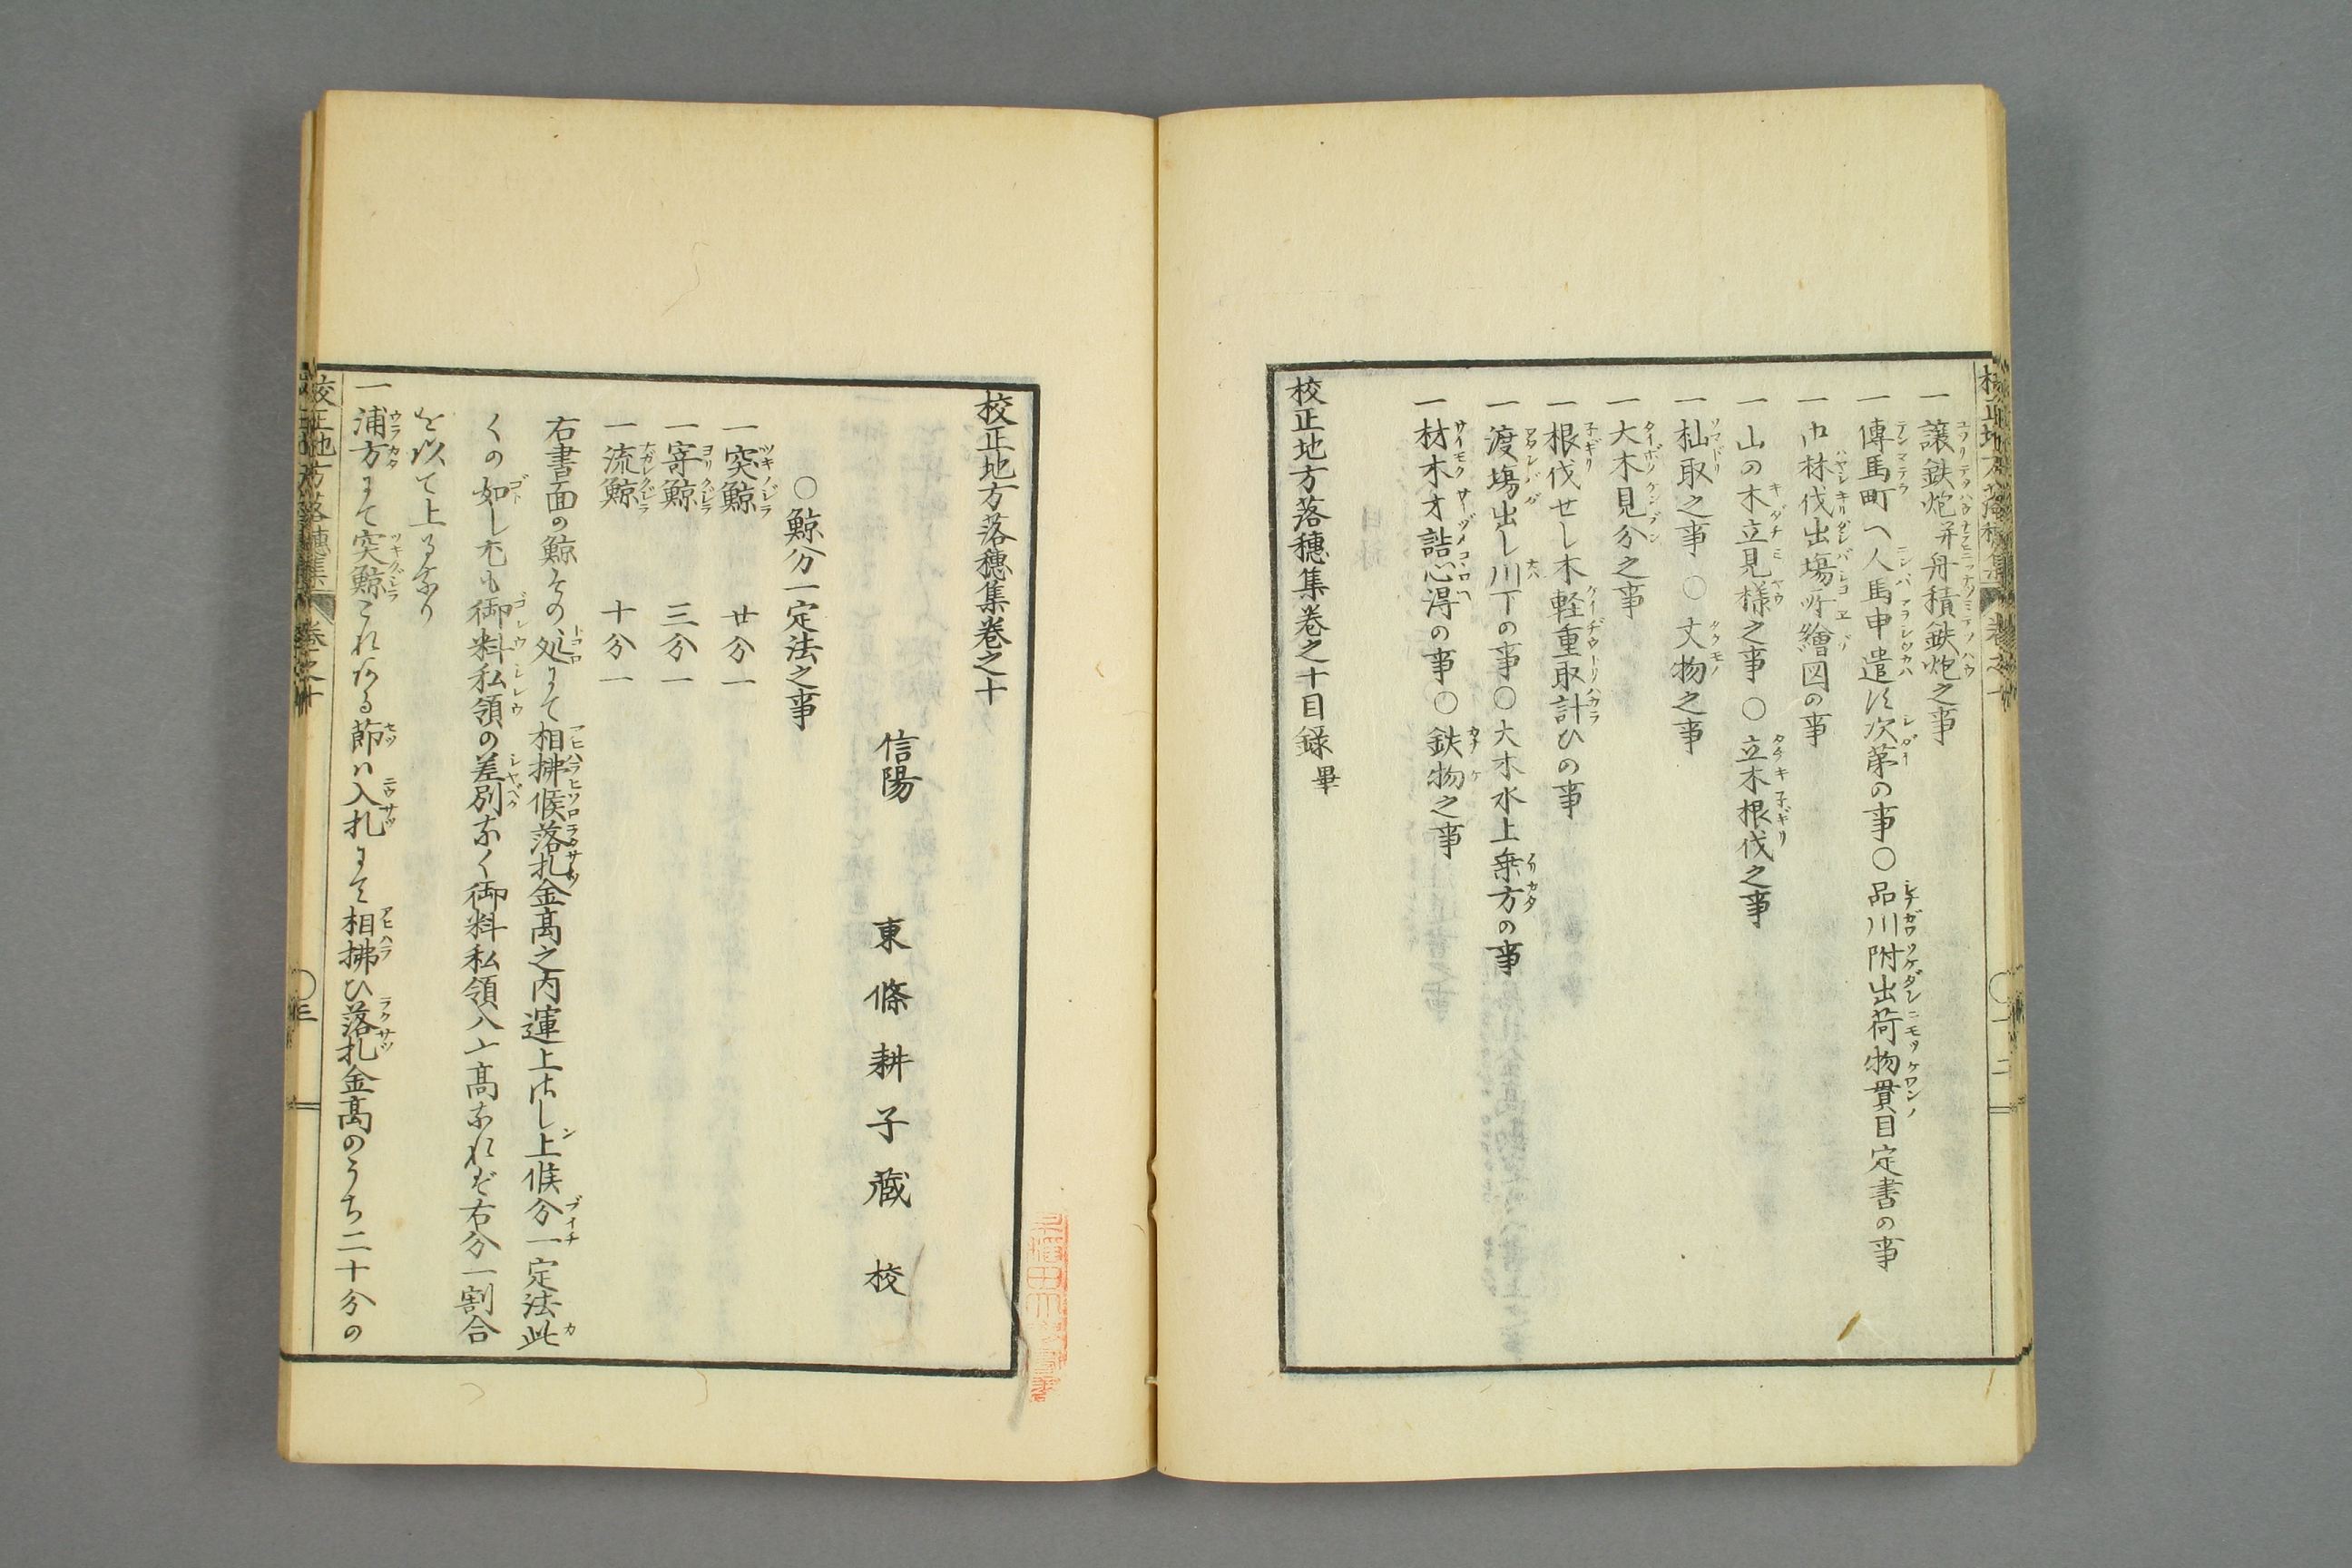 一譲鉄炮并舟積鉄炮之事
一傳馬町へ人馬申遣す次第の事○品川附出荷物貫目定書の事
一御林伐出塲所繪図の事
一山の木立見様之事○立木根伐之事
一杣取之事○丈物之事
一大木見分之事
一根伐せし木軽重取計ひの事
一渡塲出し川下の事○大木水上乗方の事
一材木才詰心得の事○鉄物之事
校正地方落穗集巻之十目録畢
校正地方落穗集巻之十
信陽 東條耕子蔵校
○鯨分一定法之事
一突鯨 廿分一
一寄鯨 三分一
一流鯨 十分一
右書面の鯨その処にて相拂候落札金髙之内運上はし上候分一定法此
くの如し尤も御料私領の差別なく御料私領入亠髙なれば右分一割合
を以て上るなり
一浦方にて突鯨これある節は入札にて相拂ひ落札金髙のうち二十分の
校正地方落穗集 巻之十